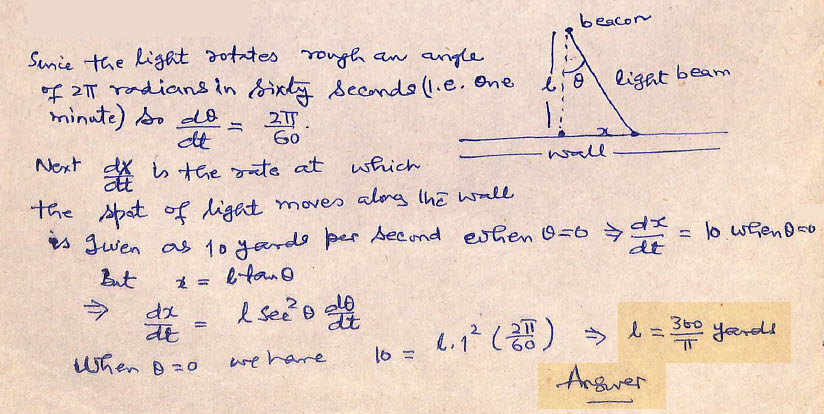 beacon
Since the light rotates rough an angle
of 2π radians in sixty seconds (i.e. One
minute) so dθ/dt = 2π/60.
l θ light beam
x
wall
Next dx/dt is the rate at which
the spot of light moves along the wall
is given as 10 yards per second when θ=0 ⇒ dx/dt = 10 when θ=0
But x = l tan θ
⇒ dx/dt = l sec² θ dθ/dt
When θ=0 we have 10 = l.1² (2π/60) ⇒ l = 300/π yards
Answer